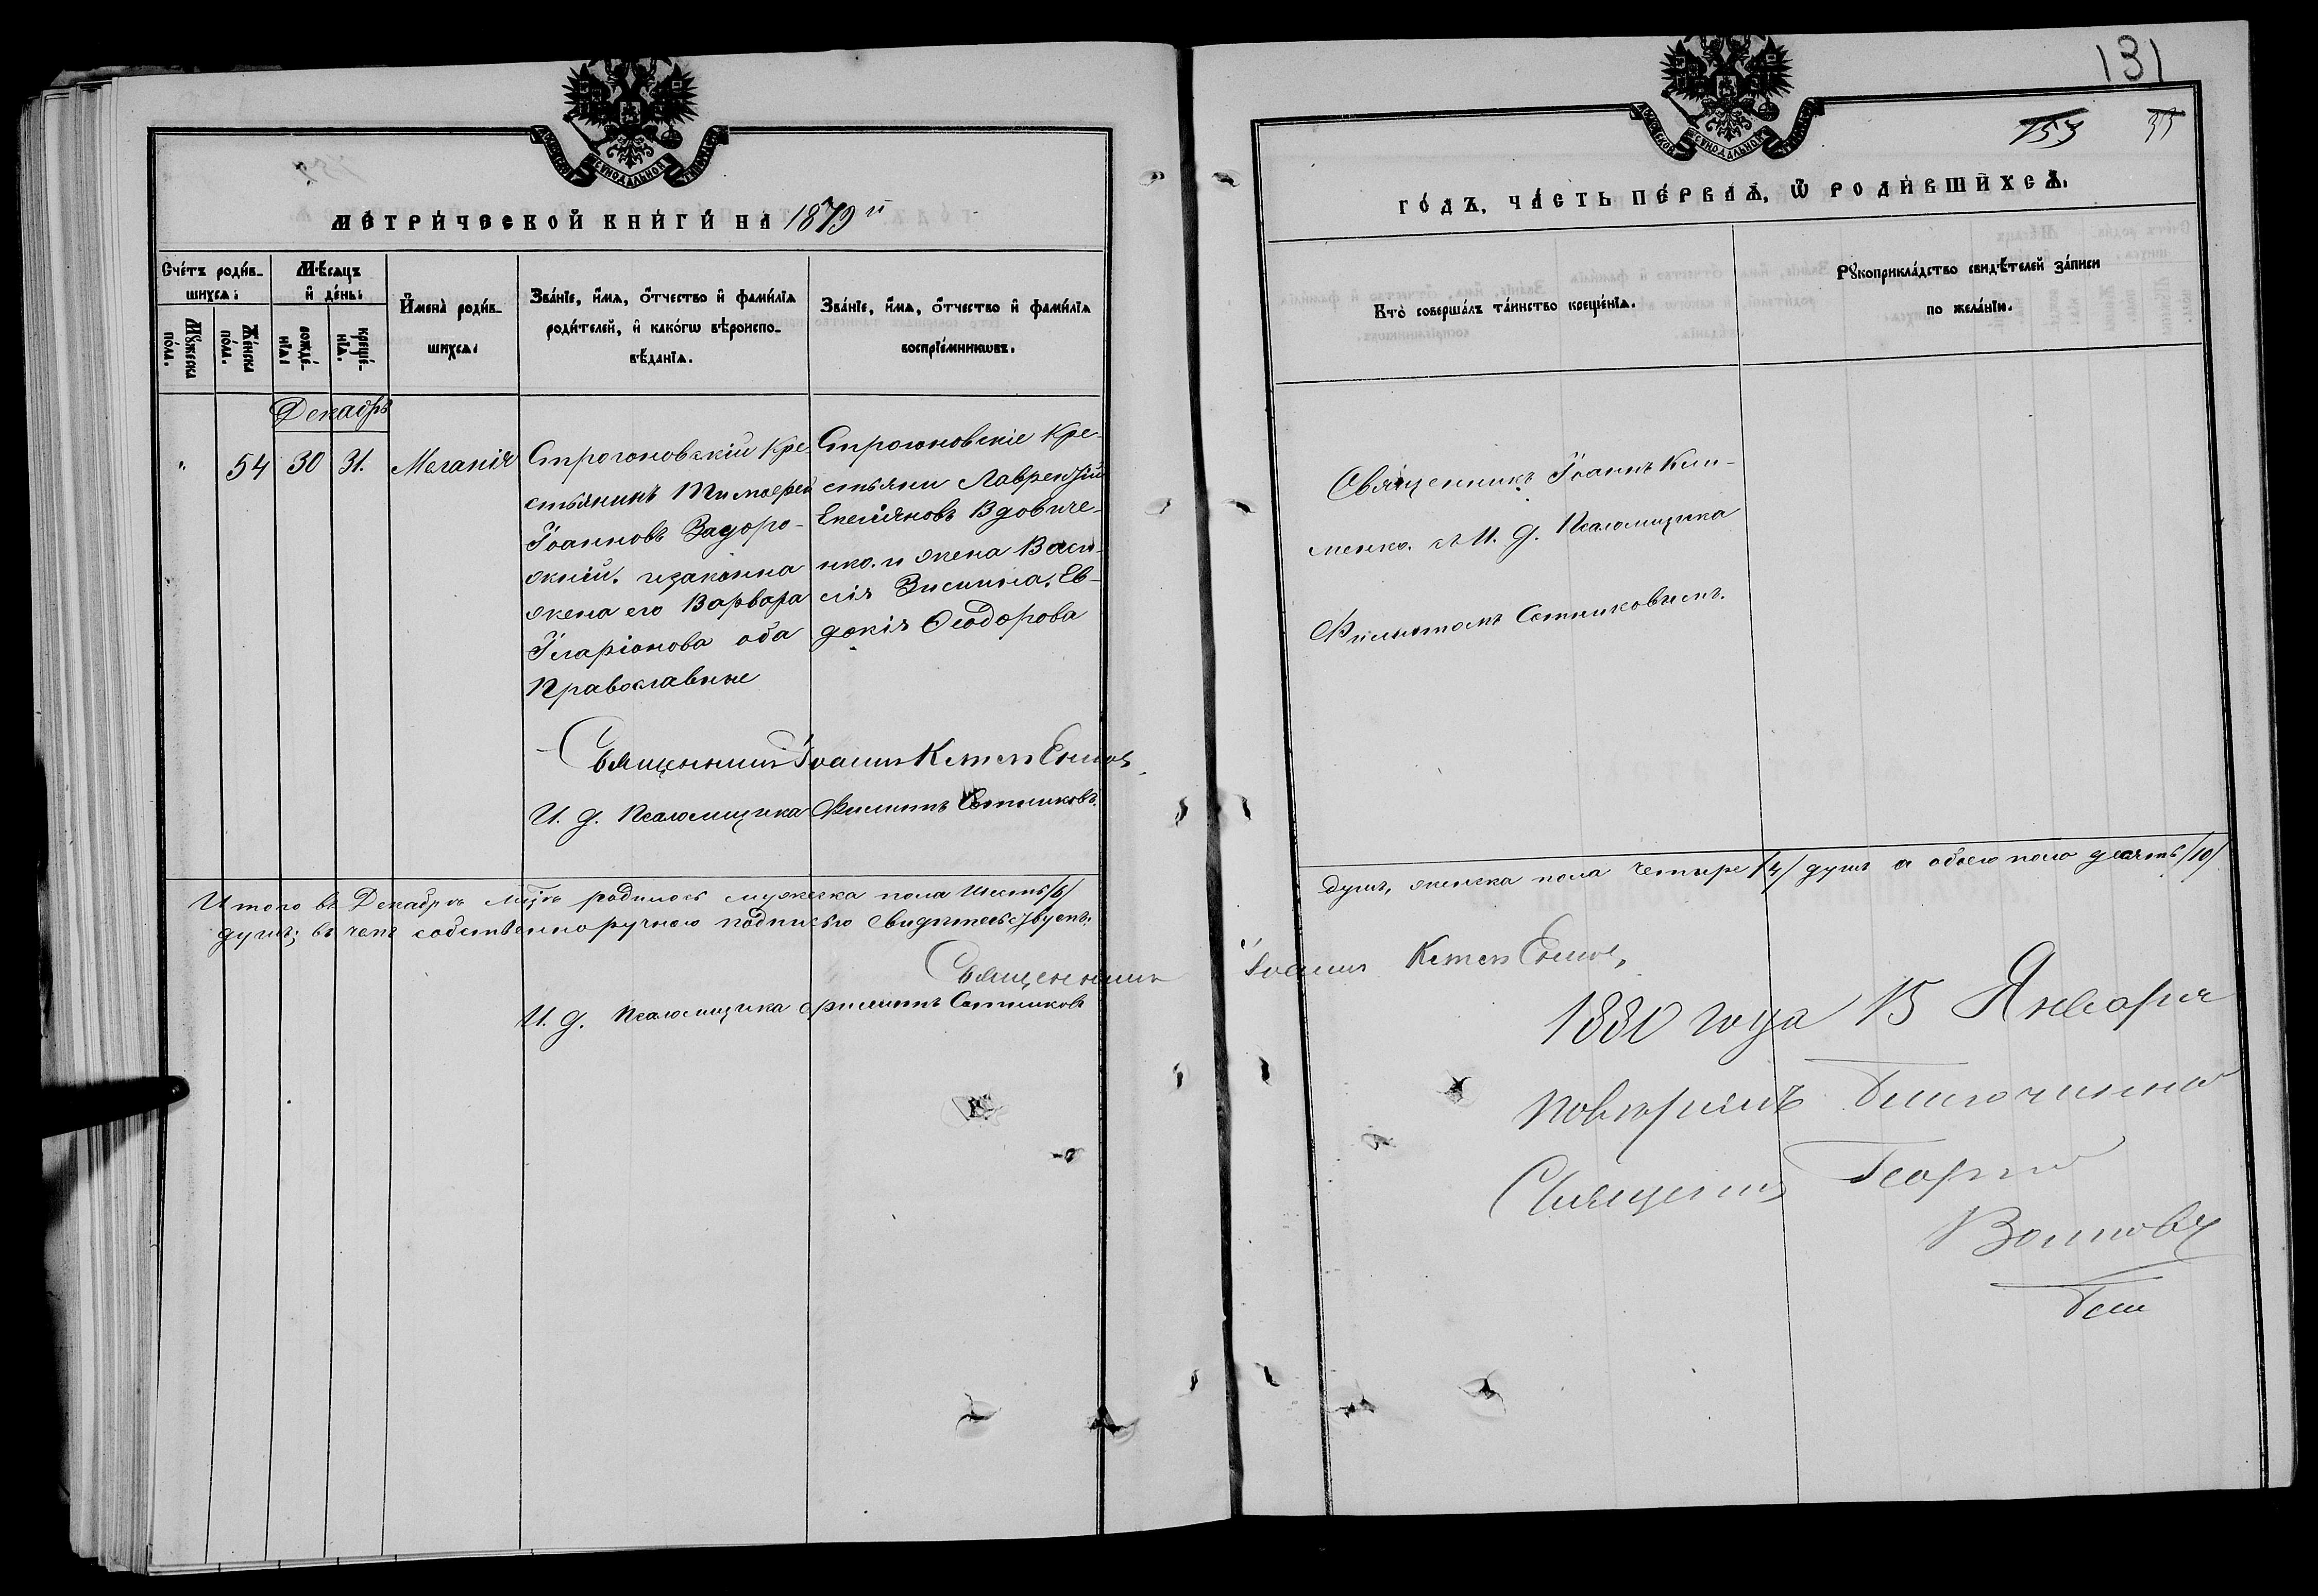 131
153 33
МЕТРИЧЕСКОЙ КНИГИ НА 1879 й
ГОДЪ, ЧАСТЬ ПЕРВАЯ, Ѿ РОДИВШИХСЯ.
Счетъ родив-
шихся:
Мужеска пола.
Женска пола.
Мѣсяцъ
и день:
рождe-
нія:
креще-
нія.
Имена родив-
шихся:
Званіе, имя, отчество и фамилія
родителей, и какогѡ вѣроиспо-
вѣданія.
Званіе, имя, отчество и фамилія
воспріемникѡвъ.
Кто совершалъ таинство крещенія.
Рукоприкладство свидѣтелей записи
по желанію.
Декабрь
" 54 30 31. Меланія
Строгоновскій Кре-
стьянинъ Тимофей
Іоанновъ Задоро-
жній. и законна
жена его Варвара
Іларіонова оба
Православные
Строгоновскіе Кре-
стьяни Лаврентій
Емелiяновъ Вдовиче-
нко. и жена Васи-
лія Зинина, Ев-
докія Ѳеодорова
Священникъ Іоаннъ Кли-
менко. съ И. д. Псаломщика
Филиппомъ Сотниковымъ.
Священникъ Іоаннъ Клименко
И. д. Псаломщика Филиппъ Сотниковъ.
Итого въ Декабрѣ мцѣ родилось мужеска пола шесть /6/
душъ, женска пола четыре /4/ душъ а обоего пола десять /10/
душъ; въ чемъ собственноручною подписью свидѣтельствуемъ.
Священникъ Іоаннъ Клименко
И. д. Псаломщика Филиппъ Сотниковъ
1880 года 15 Января
повѣрилъ Благочинный
Священникъ Георгій